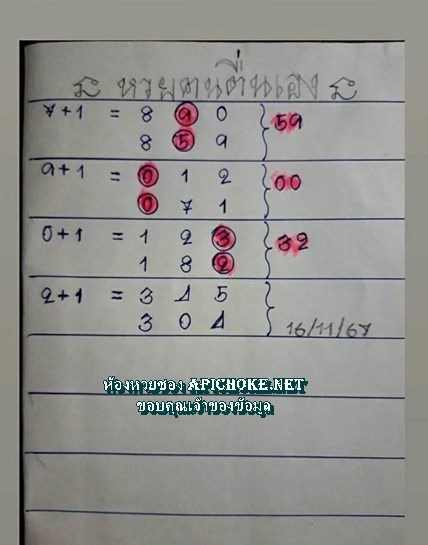 หวยคนตื่น
7+1 = 8 9 0
8 5 9 } 59
9+1 = 0 1 2
0 7 1 } 00
0+1 = 1 2 3
1 8 2 } 32
2+1 = 3 4 5
3 0 4 } 16/11/67
ห้องหวยซอง APICHOKE.NET
ขอบคุณเจ้าของข้อมูล